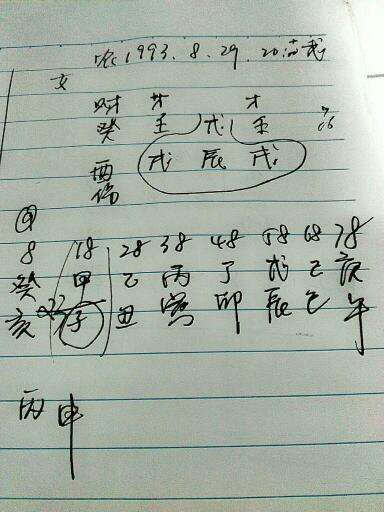 农1993.8.29.20点戌
女
财 才 才
癸 壬 戊 壬
酉 戌 辰 戌
伤
8 18 28 38 48 58 68 78
癸 甲 乙 丙 丁 戊 己 庚
亥 子 丑 寅 卯 辰 巳 午
丙申